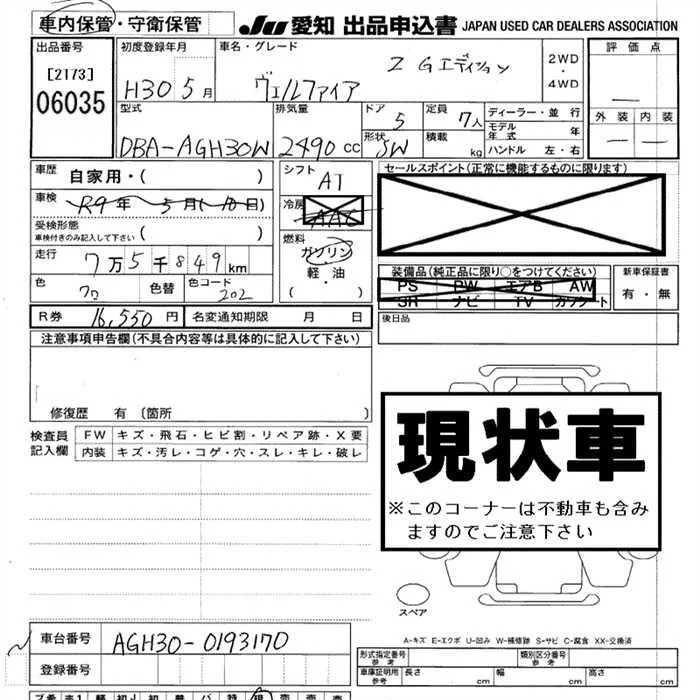 車内保管・守衛保管 JU 愛知 出品申込書 JAPAN USED CAR DEALERS ASSOCIATION
出品番号 初度登録年月 車名・グレード 評価点
[2173] H30 5月 ヴェルファイア ZGエディション 2WD・4WD
06035
型式 排気量 ドア 定員 ディーラー・並行 外装 内装
DBA-AGH30W 2490cc 5 7人 モデル年式 年
形状 SW 積載 kg ハンドル 左・右
車歴 自家用・( ) シフト AT セールスポイント(正常に機能するものに限ります)
車検 R9年 5月(-10日) 冷房 AAC
受検形態 車検付きのみ記入して下さい ( ) 燃料 ガソリン
走行 7万5千849km 軽・油
装備品(純正品に限り○をつけてください) 新車保証書
色 クロ 色替 色コード 202 ( ・ ) PS PW エアB AW 有・無
SR ナビ TV カソケート
R券 16,550円 名変通知期限 月 日 後日品
注意事項申告欄(不具合内容等は具体的に記入して下さい)
修復歴 有 〔箇所 〕
検査員記入欄 FW キズ・飛石・ヒビ割・リペア跡・X要
内装 キズ・汚レ・コゲ・穴・スレ・キレ・破レ
現状車
※このコーナーは不動車も含み
ますのでご注意下さい
スペア
A-キズ E-エクボ U-凹み W-補修跡 S-サビ C-腐食 XX-交換済
車台番号 AGH30-0193170
登録番号
形式指定番号 参考 類別区分番号 参考
車庫証明用 参考 長さ cm 幅 cm 高さ cm